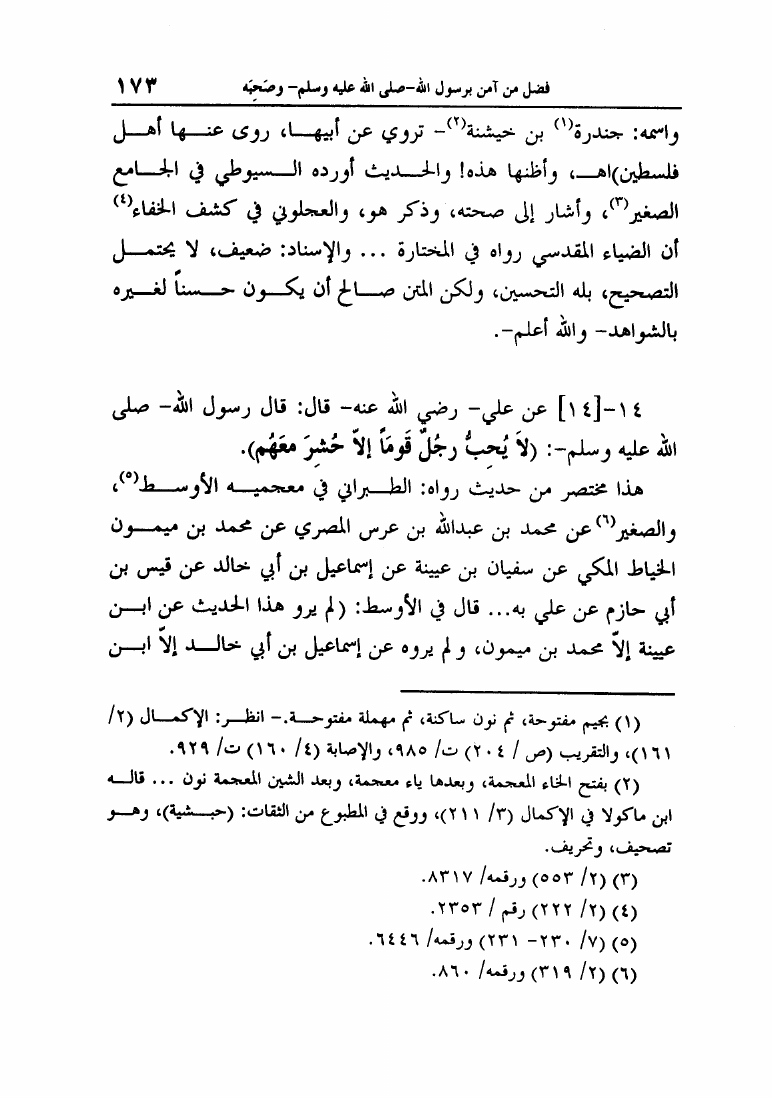 فضل من آمن برسول الله-صلى الله عليه وسلم- وصَحِبَه ١٧٣
واسمه: جندرة(١) بن خيشنة(٢)- تروي عن أبيها، روى عنها أهل
فلسطين)اهـ، وأظنها هذه! والحديث أورده السيوطي في الجامع
الصغير(٣)، وأشار إلى صحته، وذكر هو، والعجلوني في كشف الخفاء(٤)
أن الضياء المقدسي رواه في المختارة ... والإسناد: ضعيف، لا يحتمل
التصحيح، بله التحسين، ولكن المتن صالح أن يكون حسناً لغيره
بالشواهد- والله أعلم-.
١٤-[١٤] عن علي- رضي الله عنه- قال: قال رسول الله- صلى
الله عليه وسلم-: (لاَ يُحِبُّ رجُلٌ قَومَاً إلاّ حُشِرَ معَهُم).
هذا مختصر من حديث رواه: الطبراني في معجميه الأوسط(٥)،
والصغير(٦) عن محمد بن عبدالله بن عرس المصري عن محمد بن ميمون
الخياط المكي عن سفيان بن عيينة عن إسماعيل بن أبي خالد عن قيس بن
أبي حازم عن علي به... قال في الأوسط: (لم يرو هذا الحديث عن ابن
عيينة إلاّ محمد بن ميمون، ولم يروه عن إسماعيل بن أبي خالد إلاّ ابن
(١) بجيم مفتوحة، ثم نون ساكنة، ثم مهملة مفتوحة.- انظر: الإكمال (٢/
١٦١)، والتقريب (ص / ٢٠٤) ت/ ٩٨٥، والإصابة (٤/ ١٦٠) ت/ ٩٢٩.
(٢) بفتح الخاء المعجمة، وبعدها ياء معجمة، وبعد الشين المعجمة نون ... قاله
ابن ماكولا في الإكمال (٣/ ٢١١)، ووقع في المطبوع من الثقات: (حبشية)، وهو
تصحيف، وتحريف.
(٣) (٢/ ٥٥٣) ورقمه/ ٨٣١٧.
(٤) (٢/ ٢٢٢) رقم / ٢٣٥٣.
(٥) (٧/ ٢٣٠- ٢٣١) ورقمه/ ٦٤٤٦.
(٦) (٢/ ٣١٩) ورقمه/ ٨٦٠.